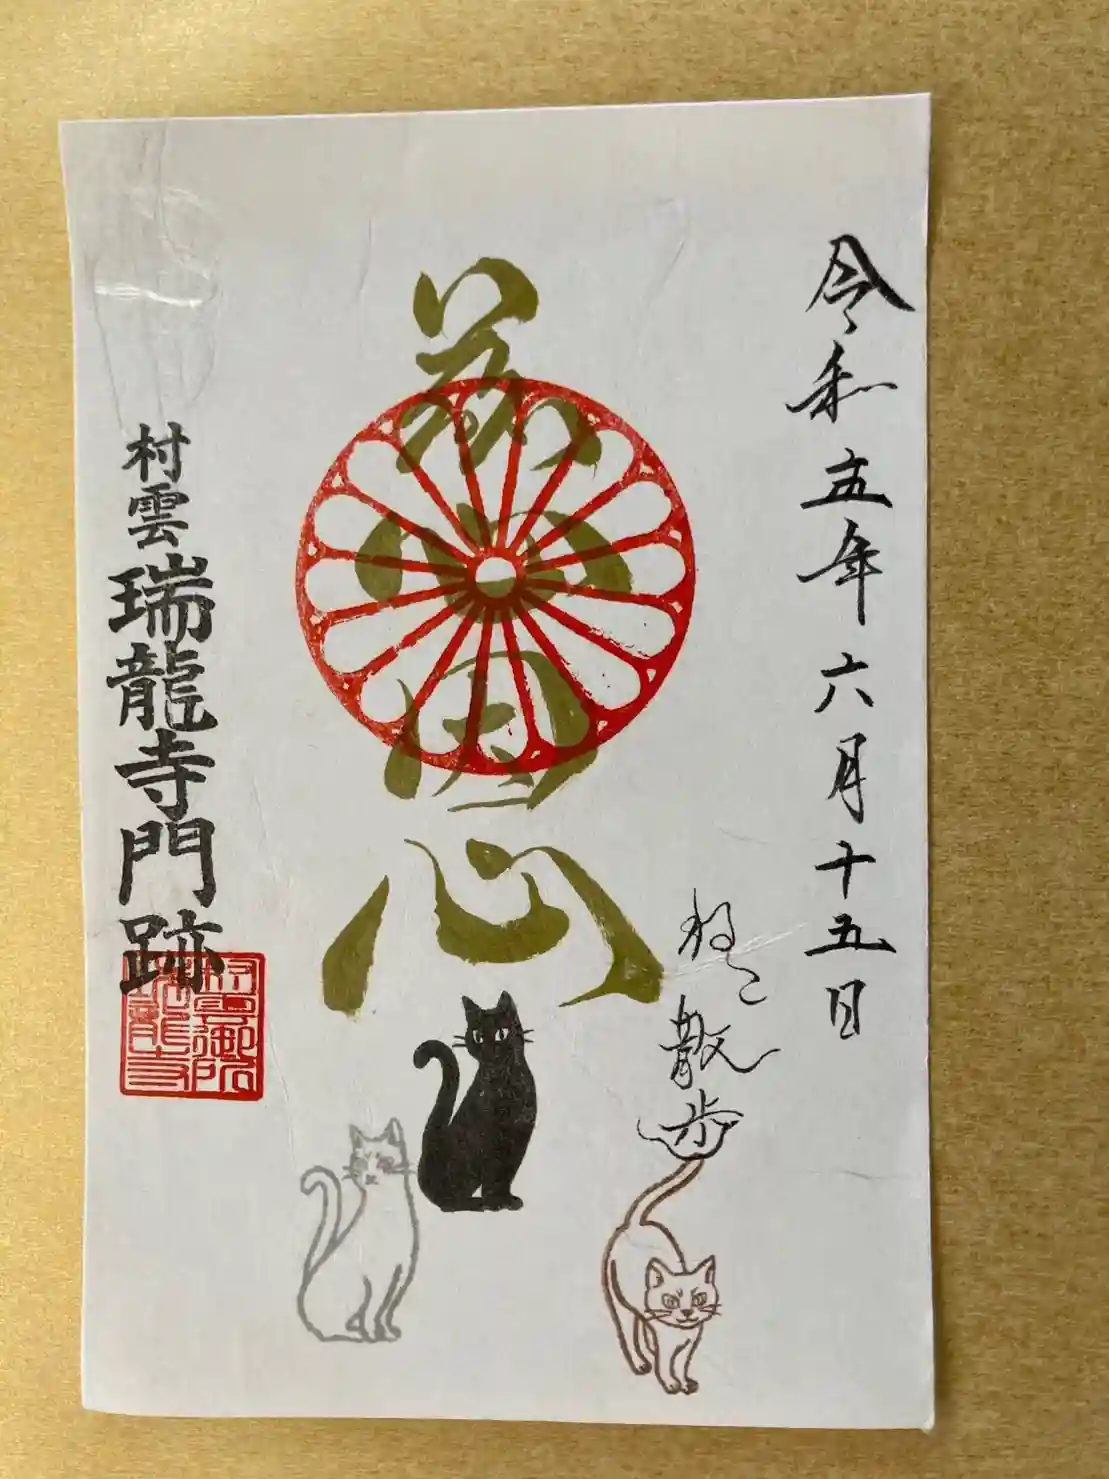 令和五年六月十五日
ねこ散歩
慈恩
村雲瑞龍寺門跡
村雲御所
瑞龍寺